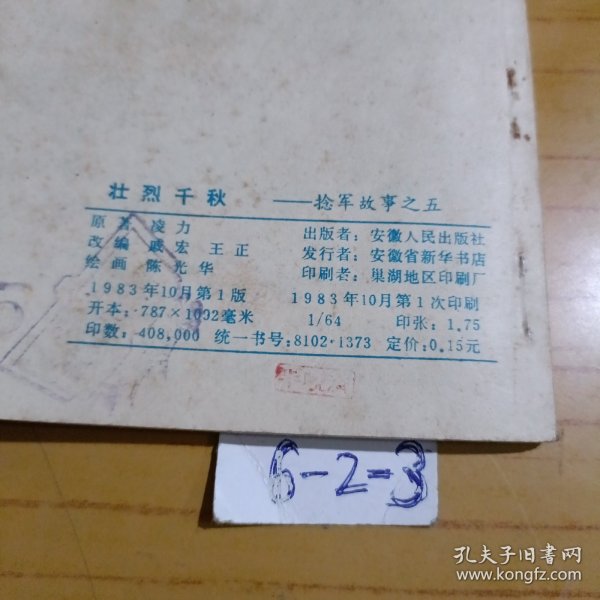 壮烈千秋 ——捻军故事之五
原著 凌力
改编 戚宏 王正
绘画 陈光华
出版者：安徽人民出版社
发行者：安徽省新华书店
印刷者：巢湖地区印刷厂
1983年10月第1版 1983年10月第1次印刷
开本：787×1092毫米 1/64 印张：1.75
印数：408,000 统一书号：8102·1373 定价：0.15元
6-2=3
孔夫子旧书网
www.kongfz.com